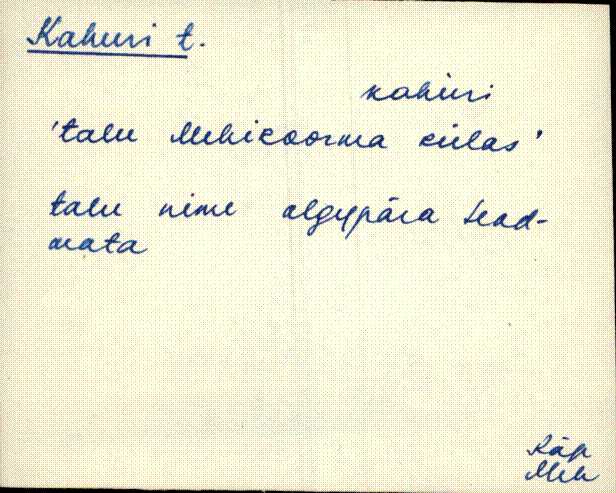 Kahuri t.
kahuri
'talu Mehikoorma külas'
talu nime algupära tead-
mata
Räp
Meh